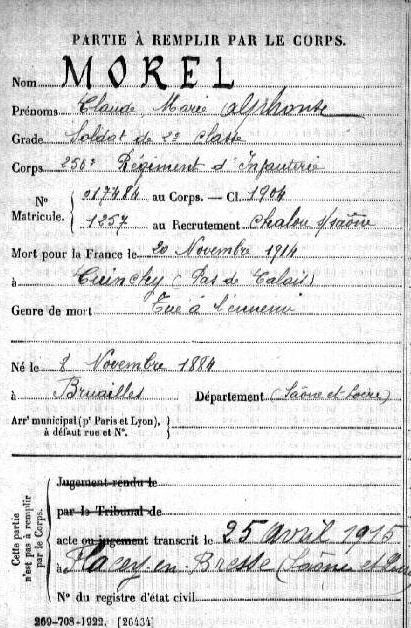 PARTIE À REMPLIR PAR LE CORPS.
Nom MOREL
Prénoms Claude, Marie Alphonse
Grade Soldat de 2e Classe
Corps 256e Régiment d'Infanterie
N° Matricule. { 017484 au Corps. — Cl. 1904
1257 au Recrutement Chalon s/saône
Mort pour la France le 20 Novembre 1914
à Cuinchy (Pas de Calais)
Genre de mort Tué à l'ennemi
Né le 8 Novembre 1884
à Bruailles Département (Saône et Loire)
Arrt municipal (pr Paris et Lyon), à défaut rue et N°.
Cette partie n'est pas à remplir par le Corps.
Jugement rendu le
par le Tribunal de
acte ou jugement transcrit le 25 avril 1915
à en Bresse (Saône et Loire
N° du registre d'état civil
269-708-1922. [26434]